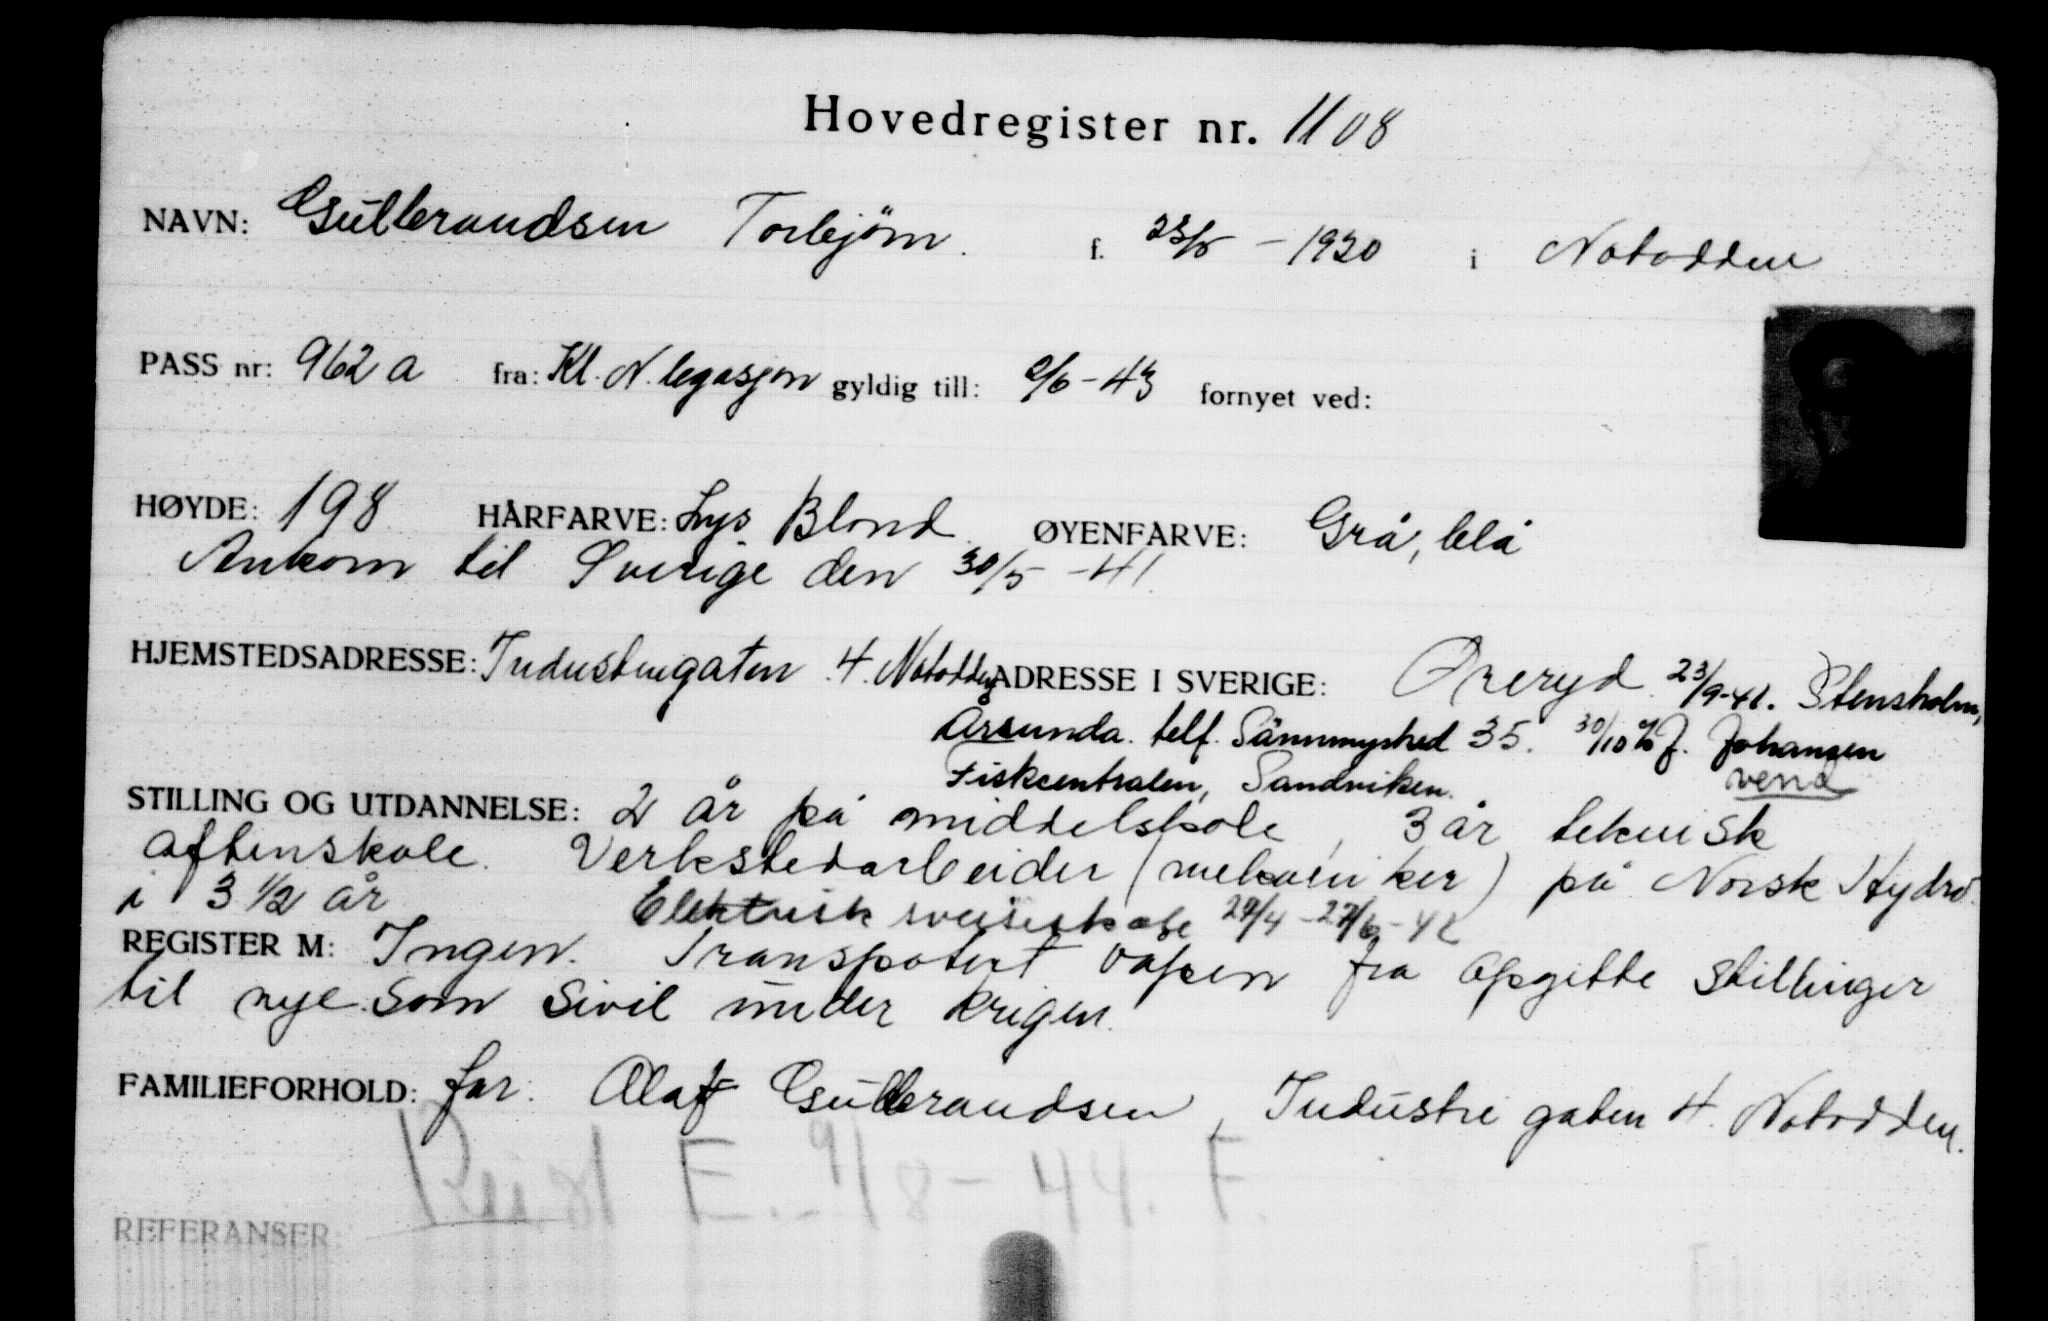 Hovedregister nr. 1108
NAVN: Gulbrandsen Torbjörn. f. 23/5 - 1920 i Notodden
PASS nr: 962 a fra: Kl. N. legasjon gyldig till: 2/6 - 43 fornyet ved:
HØYDE: 198 HÅRFARVE: Lys Blond ØYENFARVE: Grå, blå
Ankom til Sverige den 30/5 - 41.
HJEMSTEDSADRESSE: Industrigaten 4. Notodden ADRESSE I SVERIGE: Öreryd 23/9-41. Stensholm,
Årsunda. telf. 35. 30/10 % J. Johansen
Fiskcentralen, Sandviken. vend
STILLING OG UTDANNELSE: 2 år på middelskole, 3 år teknisk
aftenskole. Verkstedarbeider (mekaniker) på Norsk Hydro.
i 3 1/2 år Elektrisk sveiseskole 29/4 - 27/6 - 42
REGISTER M: Ingen. Transpotert våpen fra opgitte stillinger
til nye som sivil under krigen.
FAMILIEFORHOLD: far: Olaf Gulbrandsen, Industri gaten 4. Notodden.
E. 9/8 - 44. F.
REFERANSER: